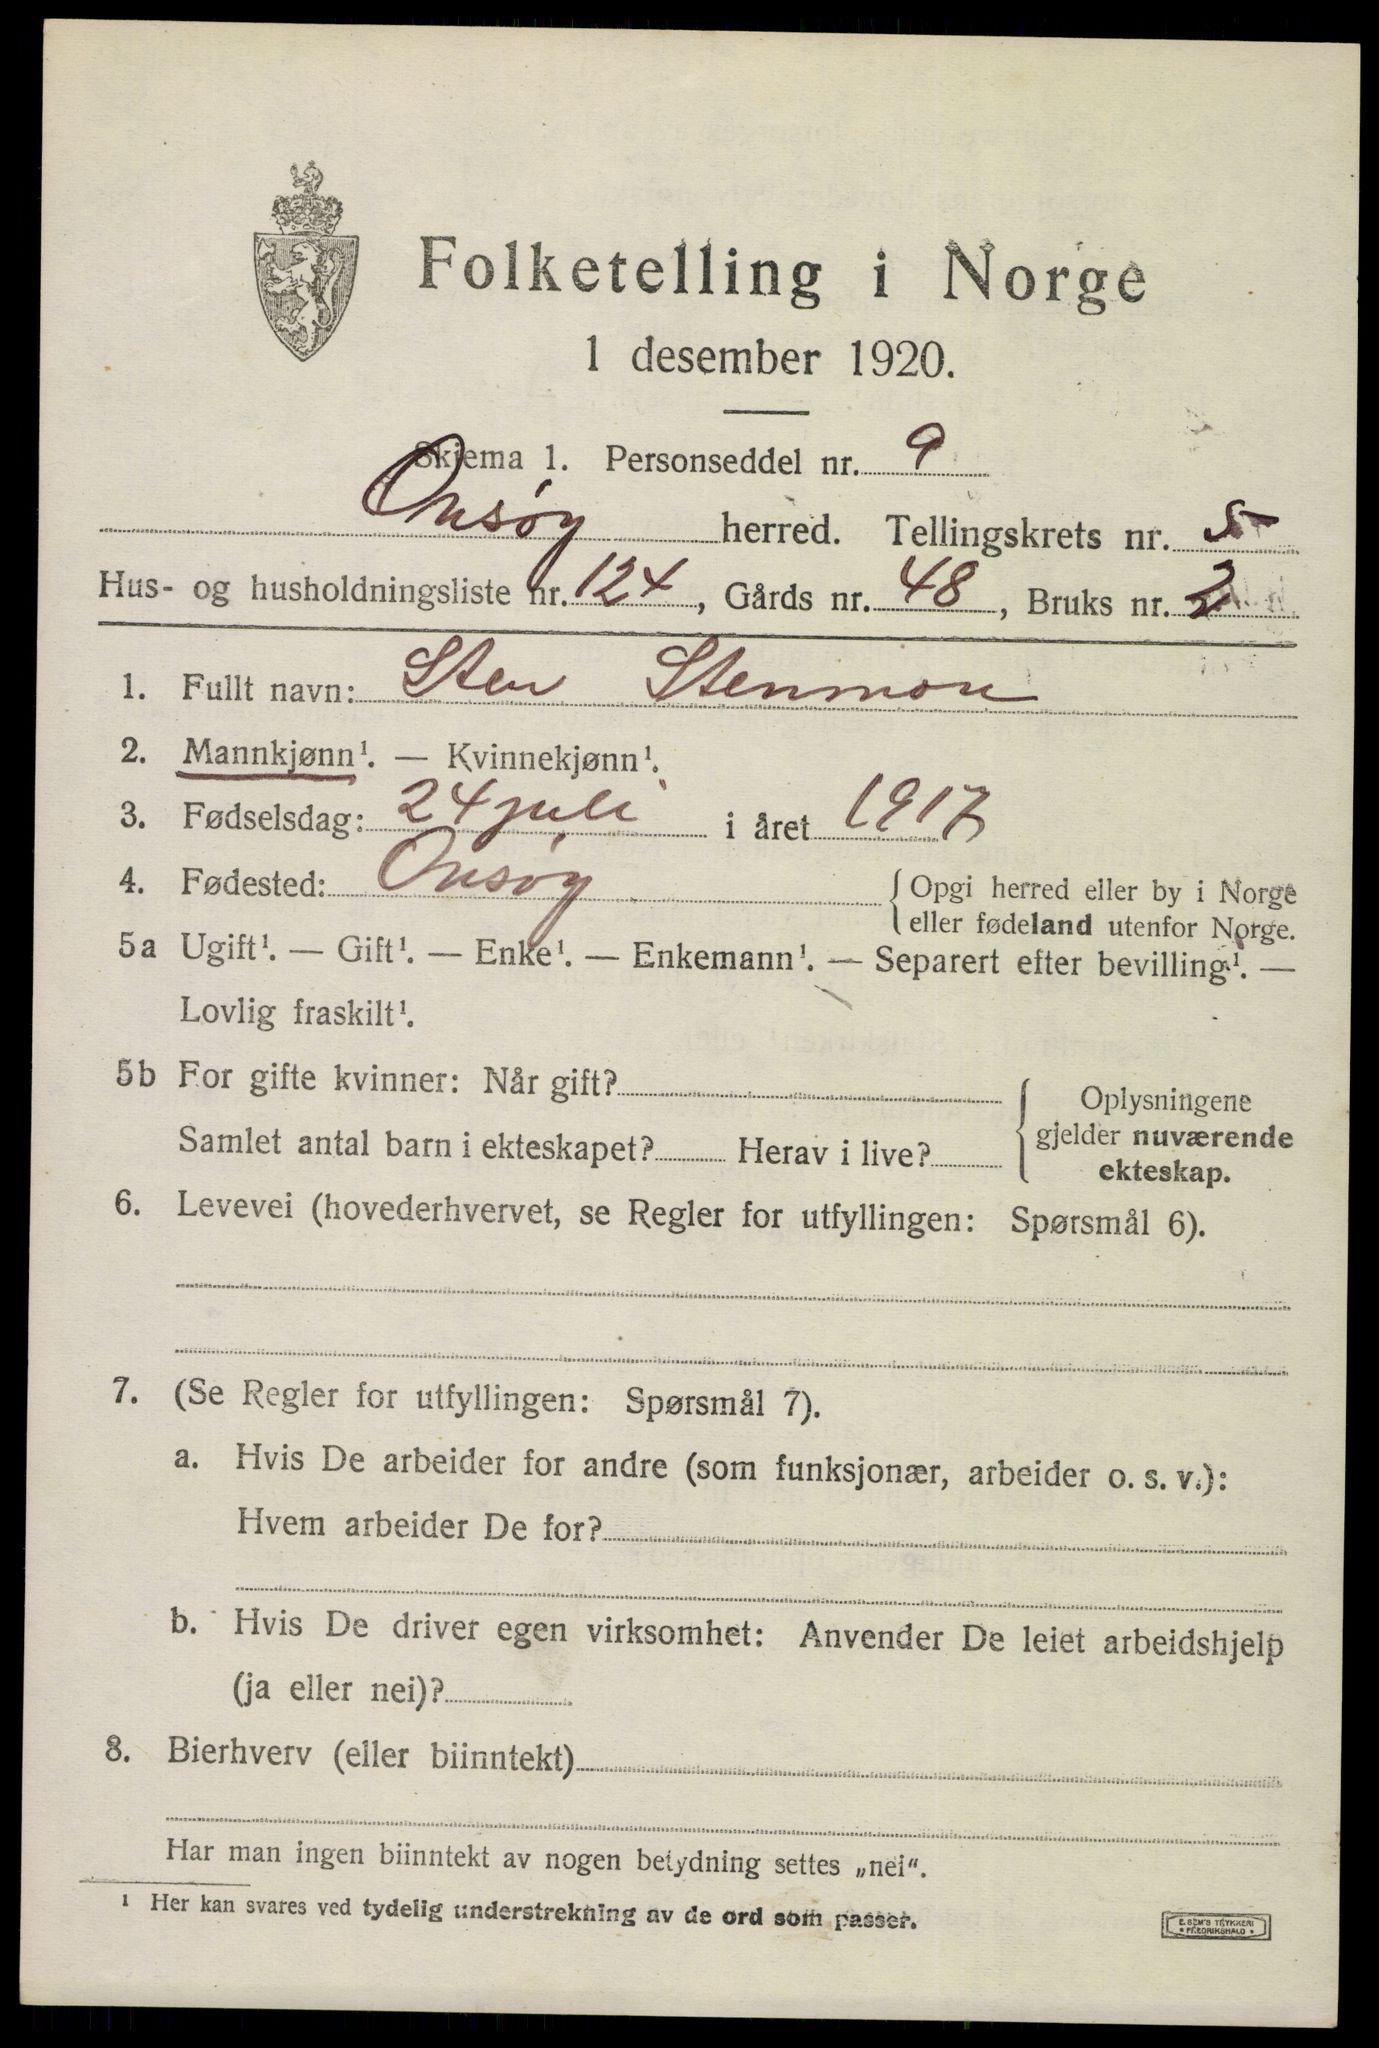 Folketelling i Norge
1 desember 1920.
Skjema 1. Personseddel nr. 9
Onsøy herred. Tellingskrets nr. 5
Hus- og husholdningsliste nr. 124, Gårds nr. 48, Bruks nr. 2
1. Fullt navn: Sten Stenmon
2. Mannkjønn¹. — Kvinnekjønn¹.
3. Fødselsdag: 24 juli i året 1917
4. Fødested: Onsøy { Opgi herred eller by i Norge
eller fødeland utenfor Norge.
5a Ugift¹. — Gift¹. — Enke¹. — Enkemann¹. — Separert efter bevilling¹. —
Lovlig fraskilt¹.
5b For gifte kvinner: Når gift?
Samlet antal barn i ekteskapet? Herav i live?
{ Oplysningene
gjelder nuværende
ekteskap.
6. Levevei (hovederhvervet, se Regler for utfyllingen: Spørsmål 6).
7. (Se Regler for utfyllingen: Spørsmål 7).
a. Hvis De arbeider for andre (som funksjonær, arbeider o. s. v.):
Hvem arbeider De for?
b. Hvis De driver egen virksomhet: Anvender De leiet arbeidshjelp
(ja eller nei)?
8. Bierhverv (eller biinntekt)
Har man ingen biinntekt av nogen betydning settes „nei“.
¹ Her kan svares ved tydelig understrekning av de ord som passer.
E. SEM'S TRYKKERI
• FREDRIKSHALD •